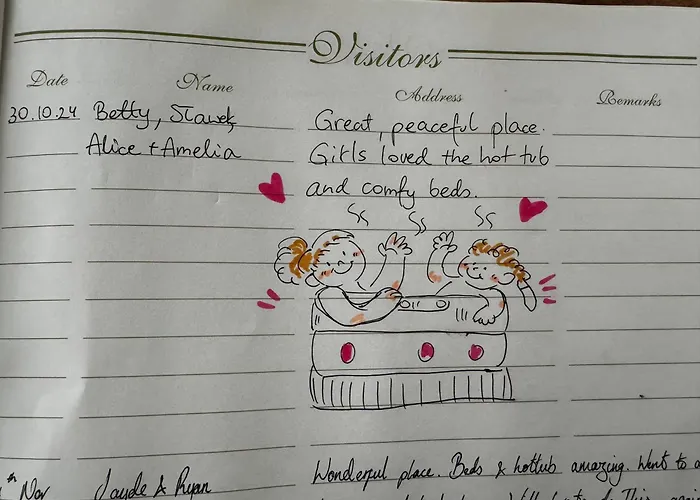 Visitors
Date Name Address Remarks
30.10.24 Betty, Sławek, Great, peaceful place.
Alice + Amelia Girls loved the hot tub
and comfy beds.
th Nov Jayde & Ryan Wonderful place. Beds & hottub amazing. Went to